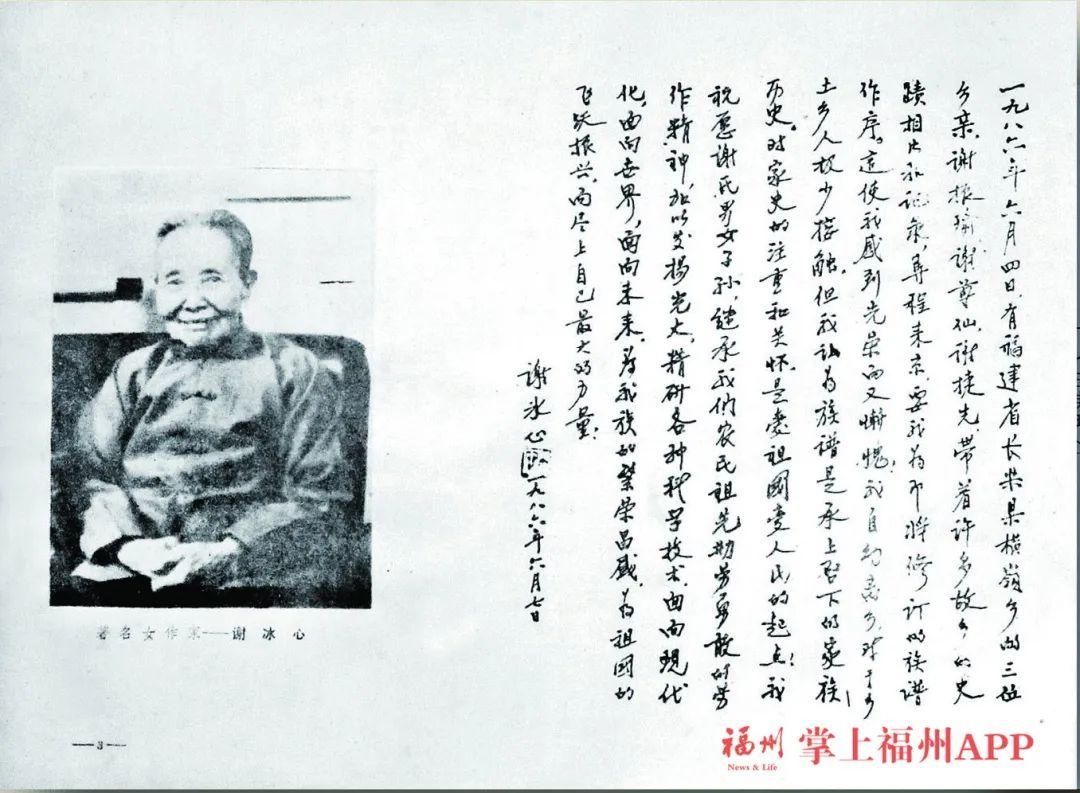 一九八六年六月四日，有福建省长乐县横嶺乡的三位
乡亲，谢振瑜谢尊仙，谢捷先，带着许多故乡的史
蹟相片和记录，专程来京，要我为即将修订的族谱
作序。这使我感到光荣而又惭愧！我自幼离乡，对于乡
土乡人极少接触。但我认为族谱是承上启下的家族
历史，对家史的注重和关怀，是爱祖國爱人民的起点！我
祝愿谢氏男女子孙，继承我们农民祖先勤劳勇敢的劳
作精神加以发揚光大，精研各种科学技术，面向現代
化，面向世界，面向未来，为我族的繁荣昌盛，为祖國的
飞跃振兴，而尽上自己最大的力量！
谢冰心 一九八六年六月七日
著名女作家——谢冰心
—3—
福州 掌上福州APP
News & Life